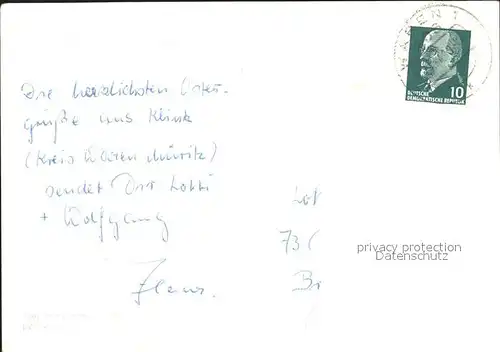 Die herzlichsten Oster-
grüße aus Klink
(Kreis Waren Müritz)
sendet Dir Lotti
+ Wolfgang
Lot
73(
Br
WAREN 1
10
DEUTSCHE
DEMOKRATISCHE REPUBLIK
privacy protection
Datenschutz